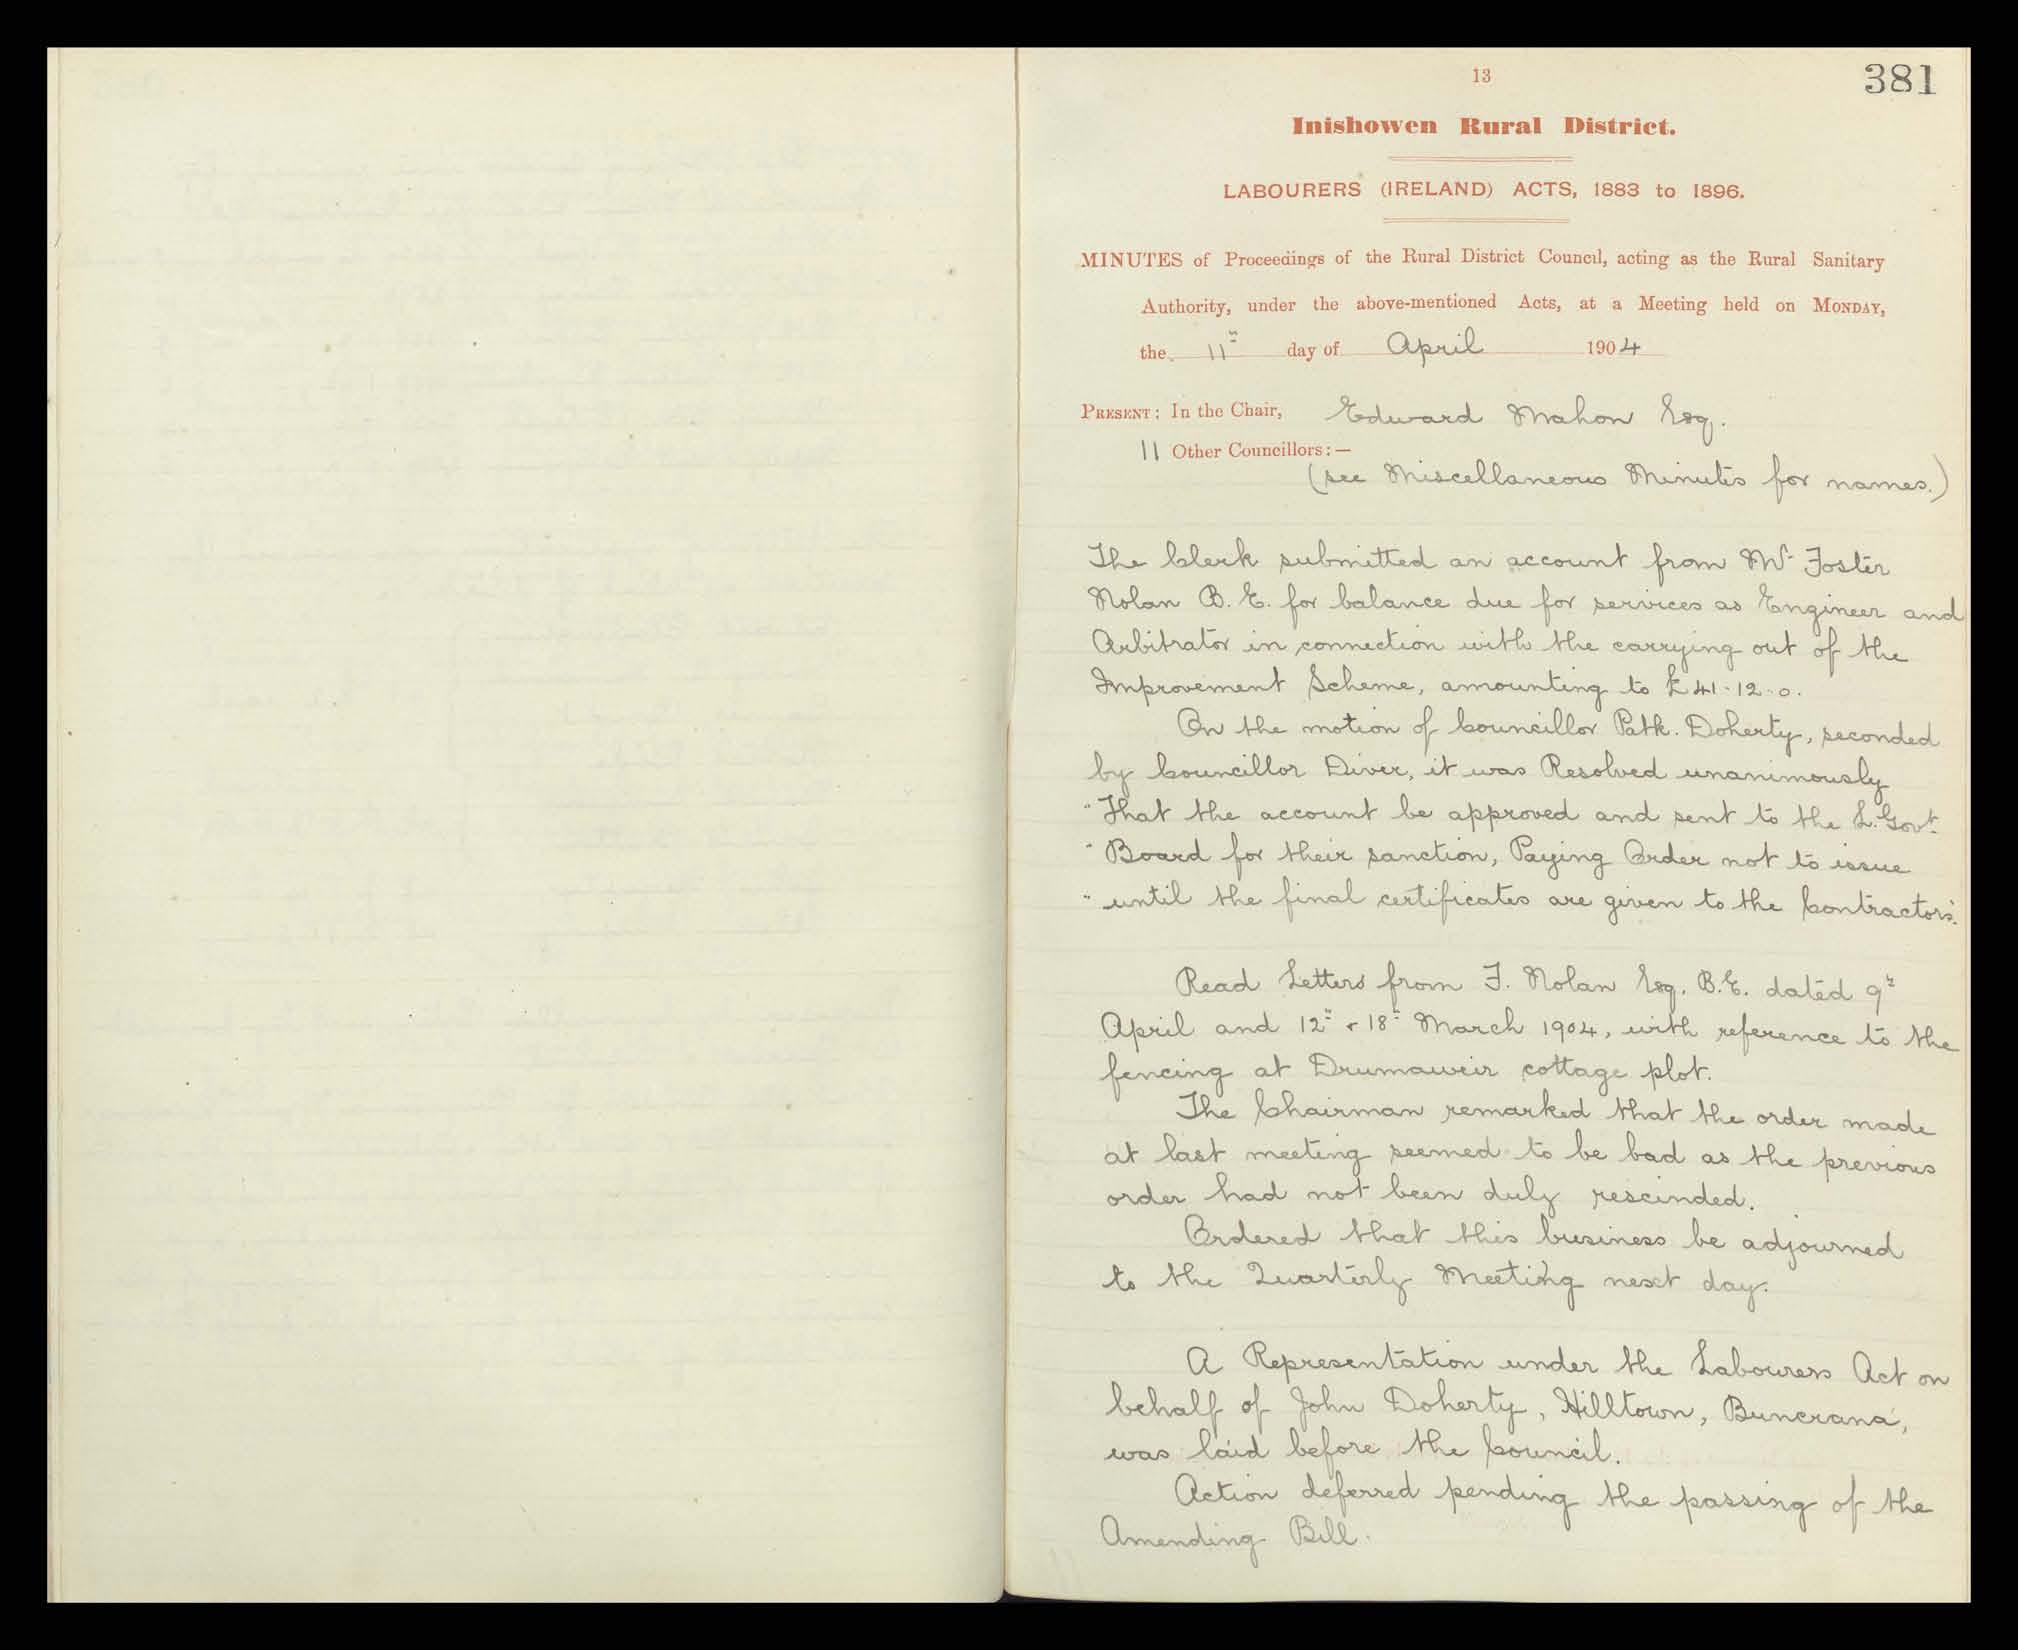 13
381
Inishowen Rural District.
LABOURERS (IRELAND) ACTS, 1883 to 1896.
MINUTES of Proceedings of the Rural District Council, acting as the Rural Sanitary
Authority, under the above-mentioned Acts, at a Meeting held on MONDAY,
the 11th day of April 1904
PRESENT: In the Chair, Edward Mahon Esq.
11 Other Councillors:—
(see Miscellaneous Minutes for names.)
The Clerk submitted an account from Mr Foster
Nolan B.E. for balance due for services as Engineer and
Arbitrator in connection with the carrying out of the
Improvement Scheme, amounting to £41-12-0.
On the motion of Councillor Patk. Doherty, seconded
by Councillor Diver, it was Resolved unanimously
"That the account be approved and sent to the L. Govt.
"Board for their sanction, Paying Order not to issue
"until the final certificates are given to the Contractors."
Read Letters from F. Nolan Esq. B.E. dated 9th
April and 12th & 18th March 1904, with reference to the
fencing at Drumaweir cottage plot.
The Chairman remarked that the order made
at last meeting seemed to be bad as the previous
order had not been duly rescinded.
Ordered that this business be adjourned
to the Quarterly Meeting next day.
A Representation under the Labourers Act on
behalf of John Doherty, Hilltown, Buncrana,
was laid before the Council.
Action deferred pending the passing of the
Amending Bill.